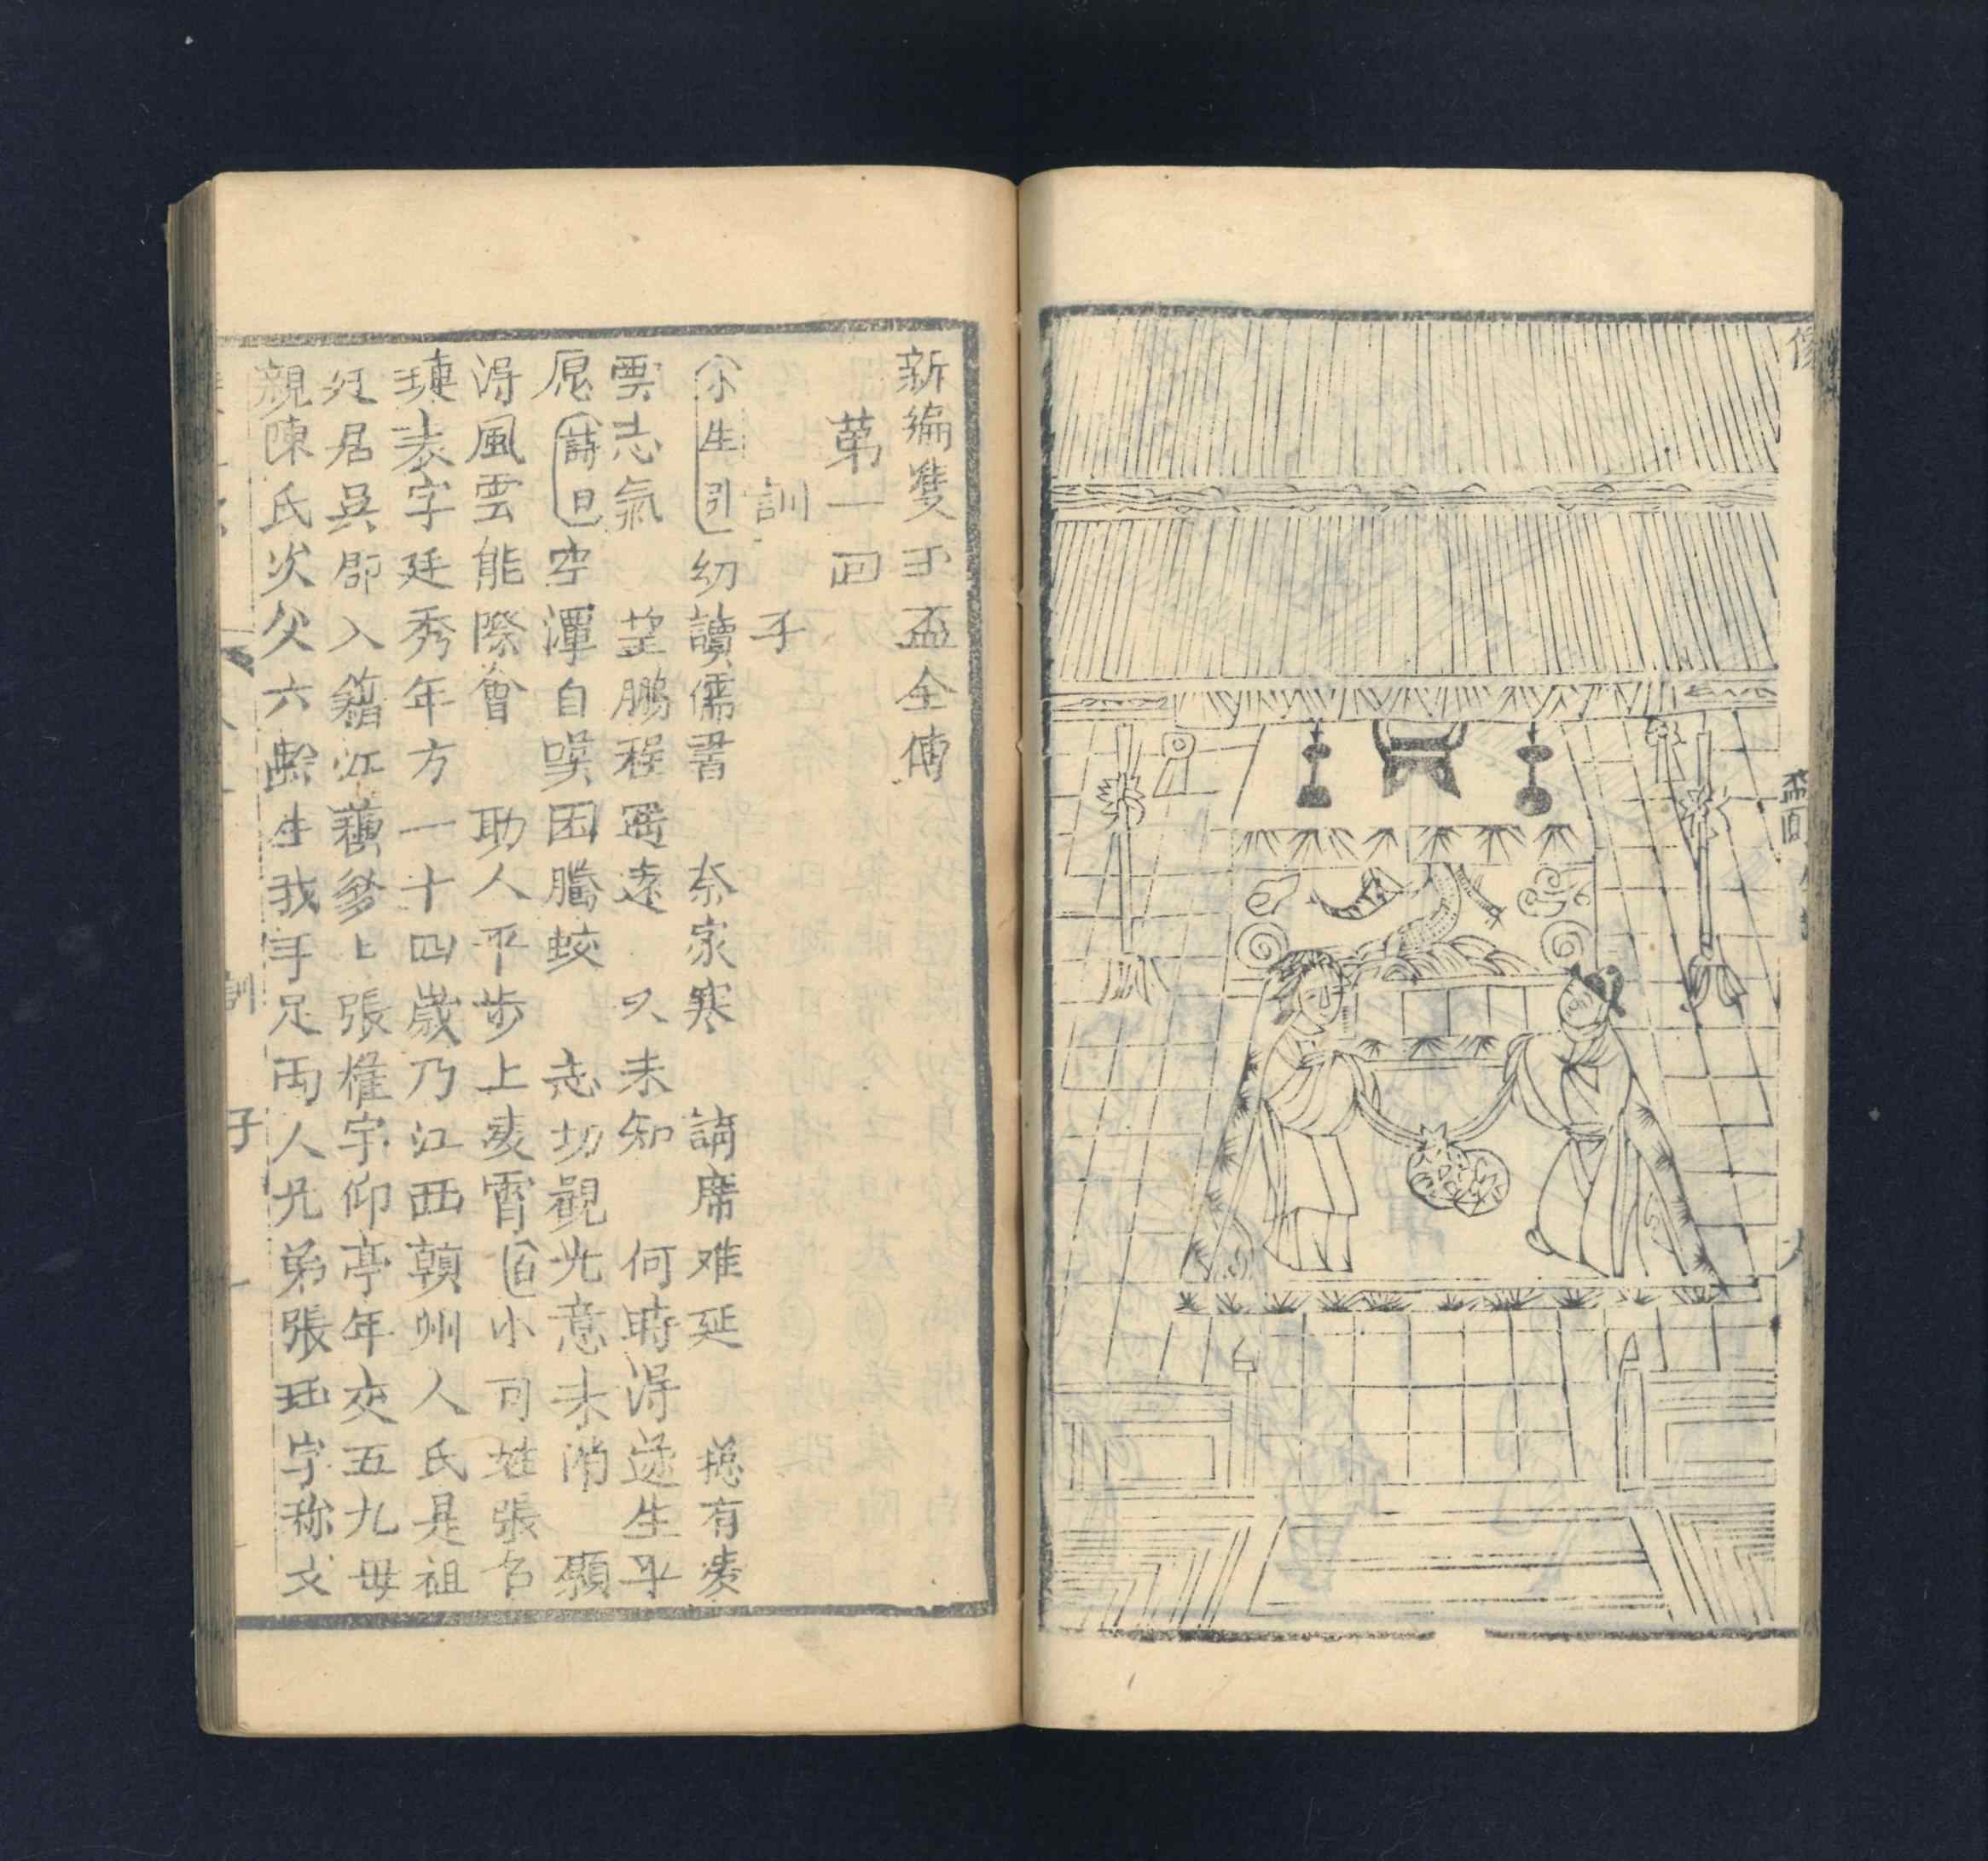 新編雙玉盃全傳
第一回
訓子
小生引 幼讀儒書 奈家寒 講席难延 揔有凌
雲志氣 望鵬程遥遠 又未知 何時淂遂生平
愿 詩曰 空潭自嘆困騰蛟 志切觀光意未消 願
淂風雲能際會 助人平步上凌霄 白 小可姓張名
璉表字廷秀年方一十四歲乃江西贑州人氏是祖
迁居吳郡入籍江蘓爹上張權字仰亭年交五九毋
親陳氏次父六齡生我手足両人兄弟張珏字称文
訓子